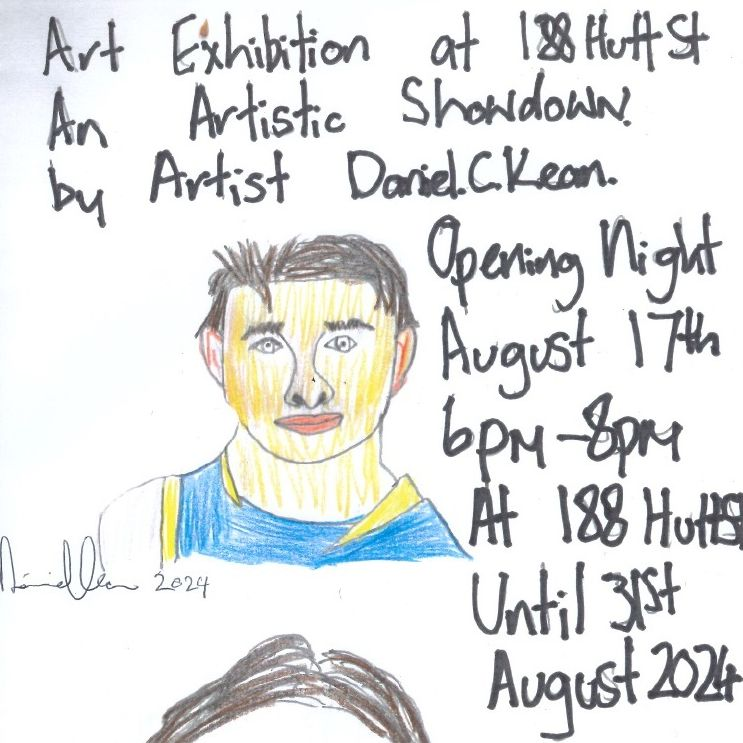 Art Exhibition at 188 Hutt St
An Artistic Showdown.
by Artist Daniel.C.Kean.
Opening Night
August 17th
6pm-8pm
At 188 Hutt St
Until 31st
August 2024
2024